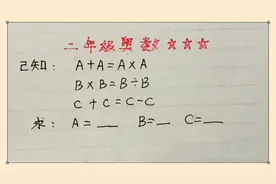 二年级奥数☆☆☆
已知: A+A=A×A
B×B=B÷B
C+C=C-C
求: A=__ B=__ C=__